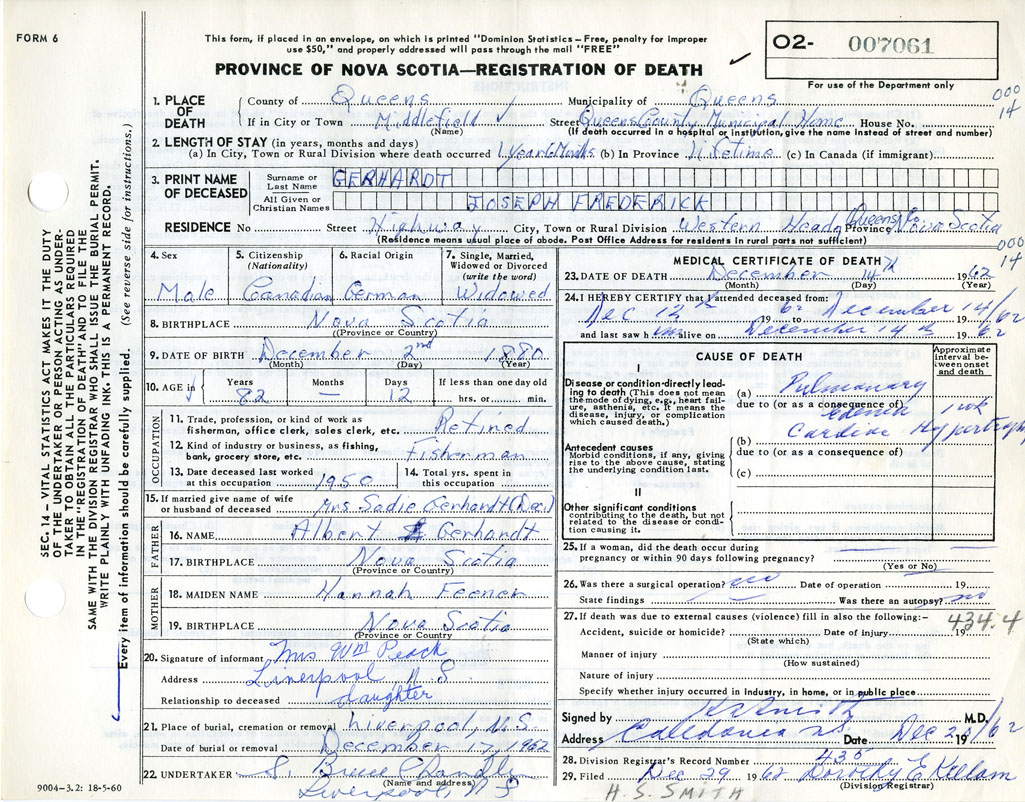 FORM 6
This form, if placed in an envelope, on which is printed "Dominion Statistics – Free, penalty for improper
use $50," and properly addressed will pass through the mail "FREE"
PROVINCE OF NOVA SCOTIA—REGISTRATION OF DEATH
O2- 007061
For use of the Department only
000
14
SEC. 14 – VITAL STATISTICS ACT MAKES IT THE DUTY
OF THE UNDERTAKER OR PERSON ACTING AS UNDER-
TAKER TO OBTAIN ALL THE PARTICULARS REQUIRED
IN THE "REGISTRATION OF DEATH" AND TO FILE THE
SAME WITH THE DIVISION REGISTRAR WHO SHALL ISSUE THE BURIAL PERMIT.
WRITE PLAINLY WITH UNFADING INK. THIS IS A PERMANENT RECORD.
Every item of information should be carefully supplied. (See reverse side for instructions.)
1. PLACE OF DEATH
County of Queens Municipality of Queens
If in City or Town Middlefield Street Queens County Municipal Home House No.
(Name) (If death occurred in a hospital or institution, give the name instead of street and number)
2. LENGTH OF STAY (in years, months and days)
(a) In City, Town or Rural Division where death occurred 1 year 6 Months (b) In Province Lifetime (c) In Canada (if immigrant)
3. PRINT NAME OF DECEASED
Surname or Last Name GERHARDT
All Given or Christian Names JOSEPH FREDERICK
RESIDENCE No Street Highway City, Town or Rural Division Western Head Queens Co Province Nova Scotia
(Residence means usual place of abode. Post Office Address for residents in rural parts not sufficient)
000
14
4. Sex Male
5. Citizenship (Nationality) Canadian
6. Racial Origin German
7. Single, Married, Widowed or Divorced (write the word) Widowed
8. BIRTHPLACE Nova Scotia
(Province or Country)
9. DATE OF BIRTH December 2nd 1880
(Month) (Day) (Year)
10. AGE in Years 82 Months — Days 12 If less than one day old hrs. or min.
OCCUPATION
11. Trade, profession or kind of work as
fisherman, office clerk, sales clerk, etc. Retired
12. Kind of industry or business, as fishing,
bank, grocery store, etc. Fisherman
13. Date deceased last worked
at this occupation 1950
14. Total yrs. spent in
this occupation
15. If married give name of wife
or husband of deceased Mrs Sadie Gerhardt (Dec)
FATHER
16. NAME Albert Gerhardt
17. BIRTHPLACE Nova Scotia
(Province or Country)
MOTHER
18. MAIDEN NAME Hannah Feener
19. BIRTHPLACE Nova Scotia
(Province or Country)
20. Signature of informant Mrs Wm Peach
Address Liverpool N S
Relationship to deceased daughter
21. Place of burial, cremation or removal Liverpool, N.S.
Date of burial or removal December 17, 1962
22. UNDERTAKER S. Bruce Chandler
(Name and address)
Liverpool, N S
9004–3.2: 18-5-60
MEDICAL CERTIFICATE OF DEATH
23. DATE OF DEATH December 14th 1962
(Month) (Day) (Year)
24. I HEREBY CERTIFY that I attended deceased from:
Dec 12th 1962 to December 14/62
and last saw him alive on December 14th 1962
CAUSE OF DEATH
Approximate interval between onset and death
I
Disease or condition-directly lead-
ing to death (This does not mean
the mode of dying, e.g., heart fail-
ure, asthenia, etc. It means the
disease, injury, or complication
which caused death.)
(a) Pulmonary
due to (or as a consequence of)
Edema 1 wk
Antecedent causes
Morbid conditions, if any, giving
rise to the above cause, stating
the underlying condition last.
(b) Cardiac Hypertrophy
due to (or as a consequence of)
(c)
II
Other significant conditions
contributing to the death, but not
related to the disease or condi-
tion causing it.
25. If a woman, did the death occur during
pregnancy or within 90 days following pregnancy?
(Yes or No)
26. Was there a surgical operation? no Date of operation 19
State findings Was there an autopsy? no
27. If death was due to external causes (violence) fill in also the following:– 434.4
Accident, suicide or homicide? Date of injury 19
(State which)
Manner of injury
(How sustained)
Nature of injury
Specify whether injury occurred in industry, in home, or in public place
Signed by H S Smith M.D.
Address Caledonia N S Date Dec 19/62
28. Division Registrar's Record Number 435
29. Filed Dec 29 1962 Dorothy E Kellam
(Division Registrar)
H. S. SMITH